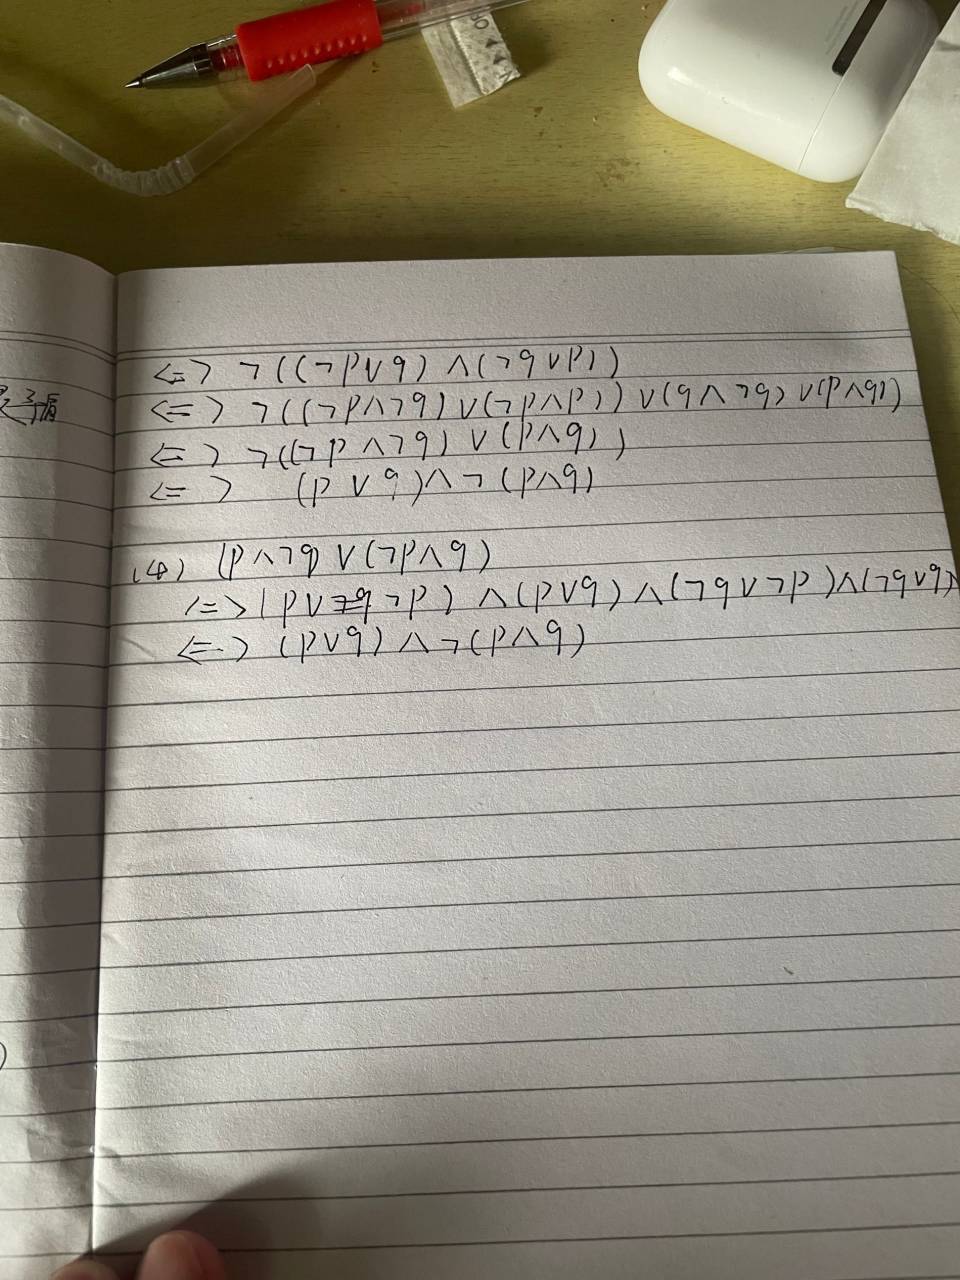 <=> ¬((¬p∨q) ∧(¬q∨p))
<=> ¬((¬p∧¬q)∨(¬p∧p))∨(q∧¬q)∨(p∧q))
<=> ¬((¬p∧¬q)∨(p∧q))
<=> (p∨q)∧¬(p∧q)
(4) (p∧¬q)∨(¬p∧q)
<=> (p∨¬p)∧(p∨q)∧(¬q∨¬p)∧(¬q∨q)
<=> (p∨q)∧¬(p∧q)